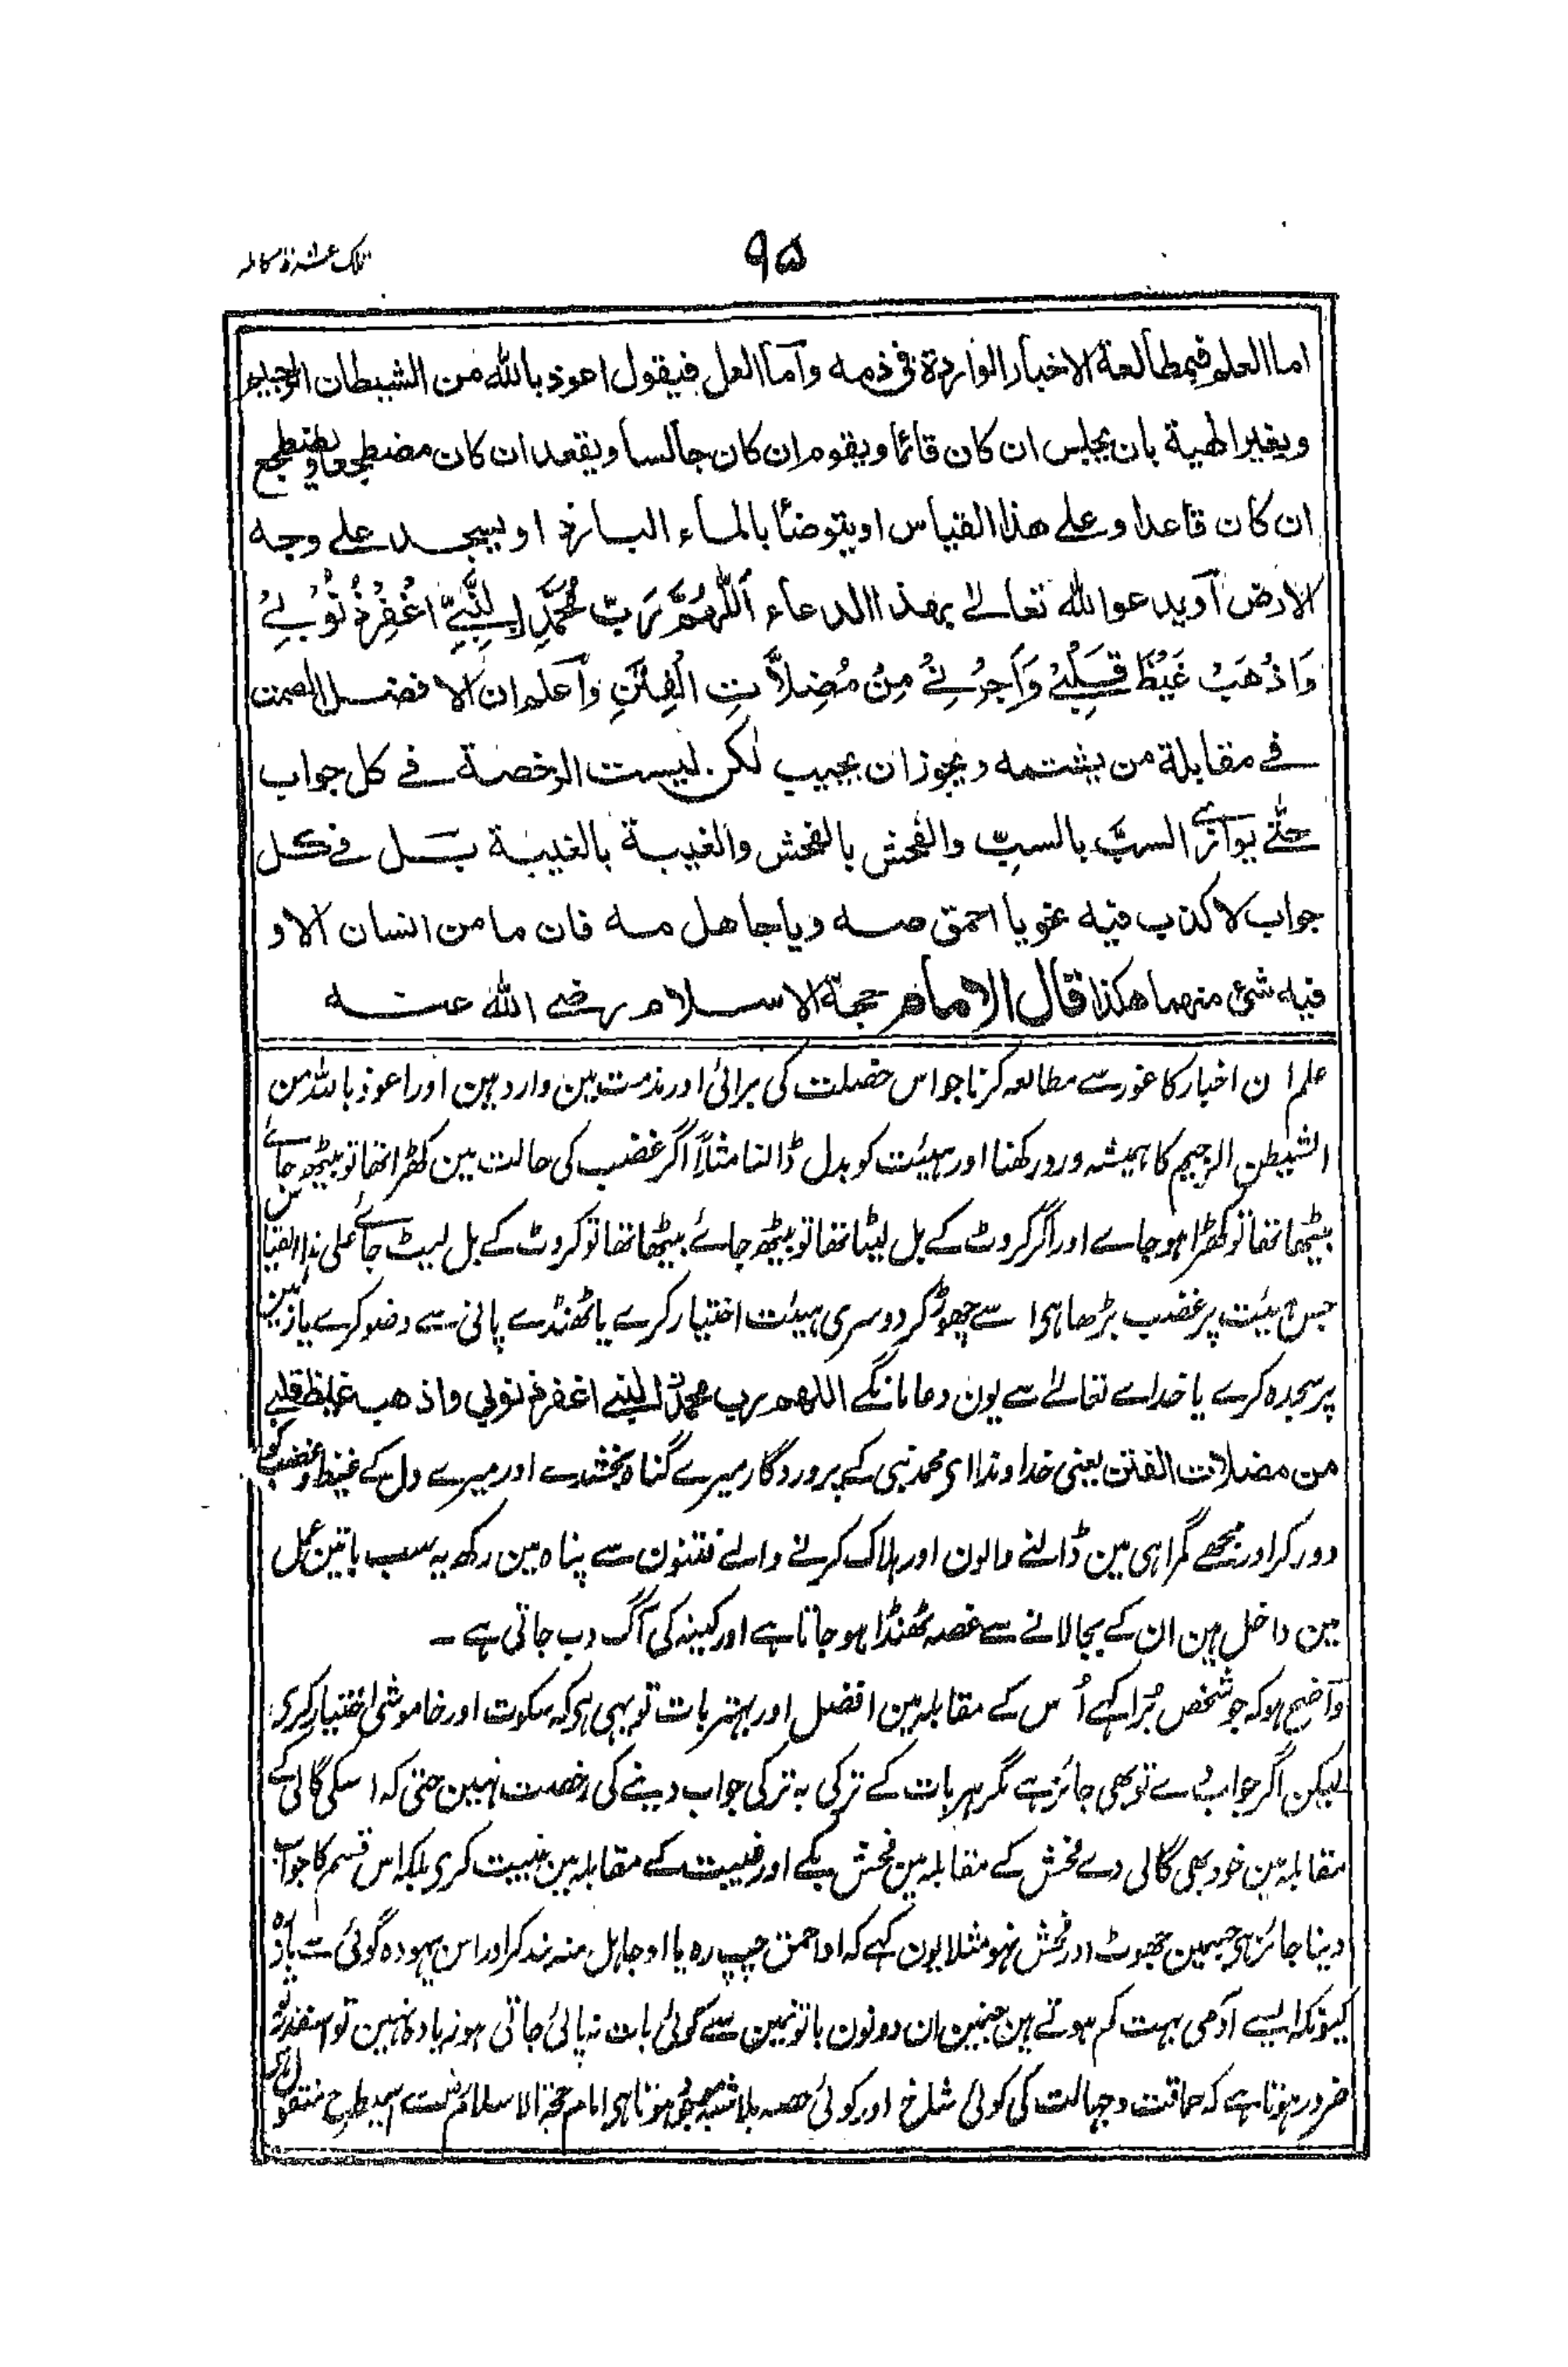 ٩۵
تلک عشرة کاملہ
اما العلم فبمطالعة الاخبار الواردة فی ذمه وآما العمل فیقول اعوذ بالله من الشیطان الرجیم
ویغیر الهیة بان یجلس ان کان قائما ویقوم ان کان جالسا ویقعد ان کان مضطجعا ویضطجع
ان کان قاعدا و علی هذا القیاس اویتوضأ بالماء البارد او یسجد علی وجه
الارض آویدعو الله تعالیٰ بهذا الدعاء اَللّٰهُمَّ رَبَّ مُحَمَّدِ اِلنَّبِيِّ اغْفِرْ ذُنُوْبِيْ
وَاذْهَبْ غَيْظَ قَلْبِيْ وَاَجِرْنِيْ مِنْ مُضِلَّاتِ الْفِتَنِ وآعلم ان الافضل الصمت
فی مقابلة من یشتمه ویجوز ان یجیب لکن لیست الرخصة فی کل جواب
حتّی یوازی السبَّ بالسبِّ والفحش بالفحش والغیبة بالغیبة بَل فی کل
جواب لا کذب فیه نحو یا احمق صه ویا جاهل مه فان ما من انسان الا و
فیه شیء منهما هکذا قال الامام حجة الاسلام رضی الله عنه
علم ان اخبار کا غور سے مطالعہ کرنا جو اس خصلت کی برائی اور مذمت مین وارد ہین اور اعوذ باللہ من
الشیطن الرجیم کا ہمیشہ ورد رکھنا اور ہیئت کو بدل ڈالنا مثلاً اگر غضب کی حالت مین کھڑا تھا تو بیٹھ جائے
بیٹھا تھا تو کھڑا ہو جاے اور اگر کروٹ کے بل لیٹا تھا تو بیٹھ جائے بیٹھا تھا تو کروٹ کے بل لیٹ جائے علی ہذا القیاس
جس ہیئت پر غضب بڑھا ہی اسے چھوڑ کر دوسری ہیئت اختیار کرے یا ٹھنڈے پانی سے وضو کرے یا زمین
پر سجدہ کرے یا خداے تعالےٰ سے یون دعا مانگے اللهم رب محمدِ النبی اغفر ذنوبی واذهب غیظ قلبی
من مضلات الفتن یعنی خداوندا ای محمد نبی کے پروردگار میرے گناہ بخشدے اور میرے دل کے غیظ و غضب کو
دور کر اور مجھے گمراہی مین ڈالنے والون اور ہلاک کرنے والے فتنون سے پناہ مین رکھ یہ سب باتین عمل
مین داخل ہین ان کے بجالانے سے غصہ ٹھنڈا ہو جاتا ہے اور کینہ کی آگ دب جاتی ہے ۔
وآضح ہو کہ جو شخص بُرا کہے اُس کے مقابلہ مین افضل اور بہتر بات تو یہی ہی کہ سکوت اور خاموشی اختیار کری
لیکن اگر جواب دے تو بھی جائز ہے مگر ہر بات کے ترکی بہ ترکی جواب دینے کی رخصت نہین حتی کہ اسکی گالی کے
مقابلہ مین خود بھی گالی دے فحش کے مقابلہ مین فحش بکے اور غیبت کے مقابلہ مین غیبت کری بلکہ اس قسم کا جواب
دینا جائز ہی جسمین جھوٹ اور فحش نہو مثلا یون کہے کہ او احمق چپ رہ یا او جاہل منہ بند کر اور اس بیہودہ گوئی سے باز آ
کیونکہ ایسے آدمی بہت کم ہوتے ہین جنمین ان دونون باتونمین سے کوئی بات نہ پائی جاتی ہو زیادہ نہین تو اسقدر تو
ضرور ہوتا ہے کہ حماقت و جہالت کی کوئی شاخ اور کوئی حصہ بلا شبہ ہوتا ہی امام حجة الاسلام سے اسیطرح منقول ہی